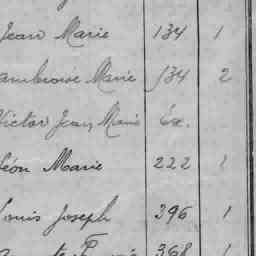 Jean Marie 134 1
Marie 134 2
Victor Jean Marie Ex.
Léon Marie 222 1
Louis Joseph 396 1
368 1